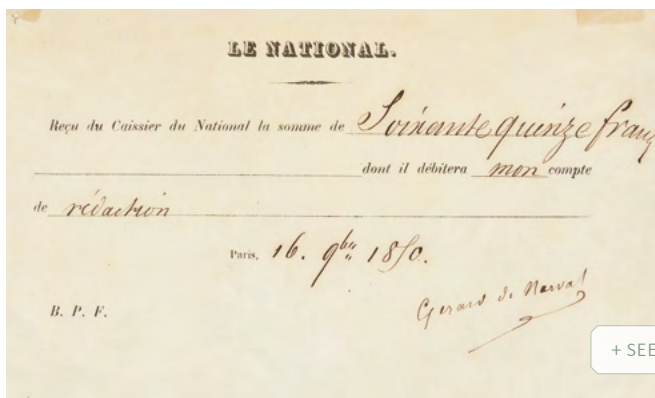 LE NATIONAL.
Reçu du Caissier du National la somme de Soixante quinze franc
dont il débitera mon compte
de rédaction
Paris, 16. 9bre 1850.
Gerard de Nerval
B. P. F.
+ SEE